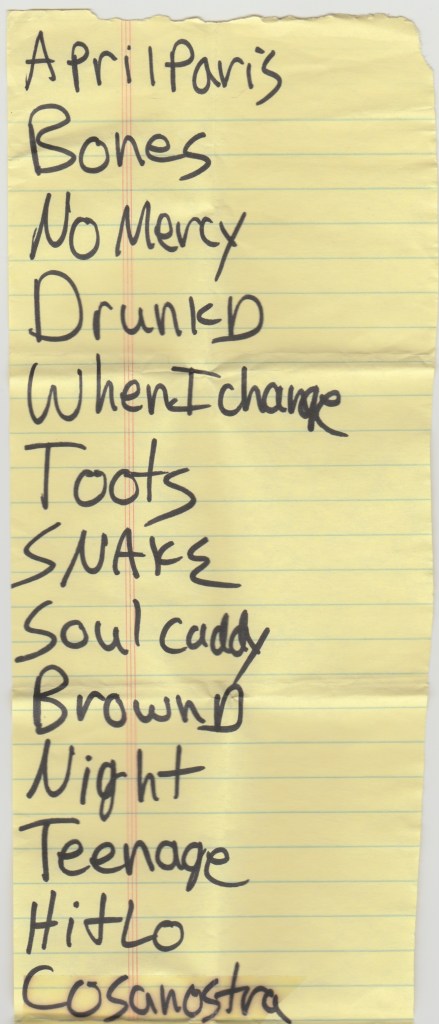 AprilParis
Bones
No Mercy
DrunkD
WhenIchange
Toots
SNAKE
Soul caddy
BrownD
Night
Teenage
HitLo
Cosanostra